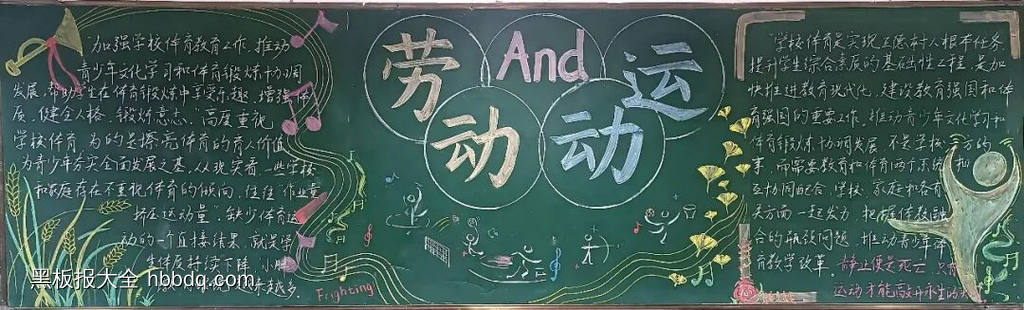 加强学校体育教育工作,推动
青少年文化学习和体育锻炼协调
发展,帮助学生在体育锻炼中享受乐趣,增强体
质、健全人格、锻炼意志、高度重视
学校体育,为的是擦亮体育的育人价值,
为青少年夯实全面发展之基。从现实看,一些学校
和家庭存在不重视体育的倾向,往往作业量
挤压运动量,缺少体育运
动的一个直接结果,就是学
生体质持续下降,小胖
越多。
黑板报大全 hbbdq.com
Frighting!
劳动
And
运动
学校体育是实现立德树人根本任务
提升学生综合素质的基础性工程,是加
快推进教育现代化、建设教育强国和体
育强国的重要工作。推动青少年文化学习和
体育锻炼协调发展,不是学校一方的
事,而需要教育和体育两个系统和
互协同配合,学校、家庭和各有
关方面一起发力,把
合的瓶颈问题,推动青少年体
育教学改革。静止便是死亡,只有
运动才能敲开永生的大